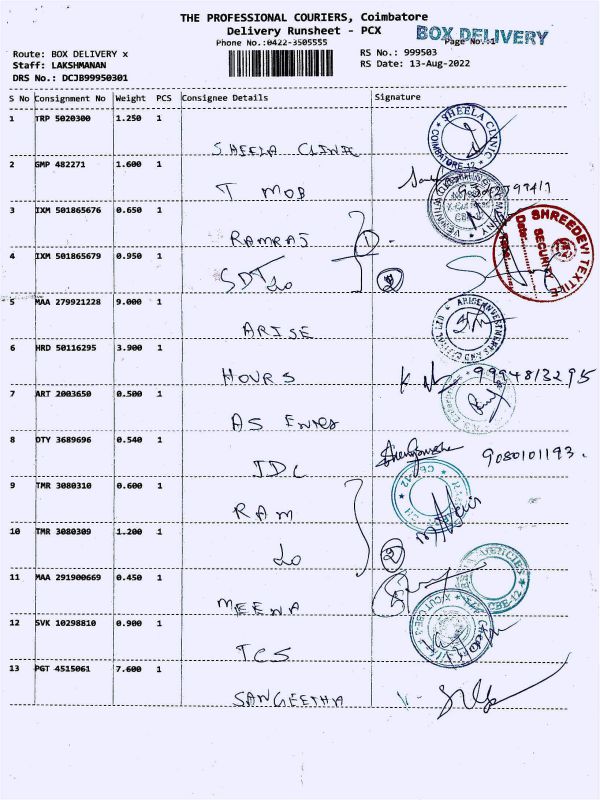 THE PROFESSIONAL COURIERS, Coimbatore
Delivery Runsheet - PCX
BOX DELIVERY
Phone No.:0422-3505555
Page No.:1
Route: BOX DELIVERY x
RS No.: 999503
Staff: LAKSHMANAN
RS Date: 13-Aug-2022
DRS No.: DCJB99950301
S No Consignment No Weight PCS Consignee Details Signature
1 TRP 5020300 1.250 1
SHEELA CLINIC
SHEELA CLINIC COIMBATORE-12
2 GMP 482271 1.600 1
T MOB
3 IXM 501865676 0.650 1
RAMRAJ 1
SHREEDEVI TEXTILE
SECURITY
Date:
Time:
4 IXM 501865679 0.950 1
SDT Lo 2
5 MAA 279921228 9.000 1
ARISE
6 HRD 50116295 3.900 1
HOURS
9994813295
7 ART 2003650 0.500 1
AS
8 OTY 3689696 0.540 1
IDL
9080101193.
9 TMR 3080310 0.600 1
RAM
CBE-12
10 TMR 3080309 1.200 1
Lo 2
11 MAA 291900669 0.450 1
MEENA
AGENCIES
CBE-12
12 SVK 10298810 0.900 1
TCS
13 PGT 4515061 7.600 1
SANGEETHA